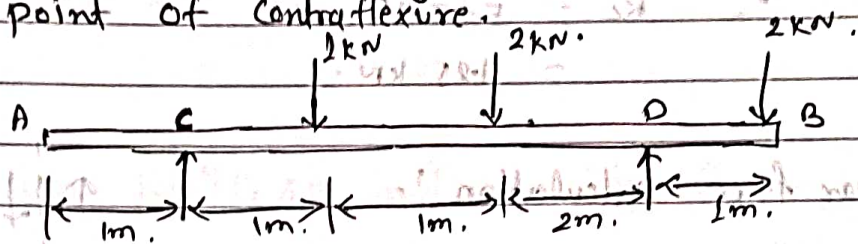 point of Contraflexure.
2kN 2kN. 2kN.
A C D B
1m. 1m. 1m. 2m. 1m.